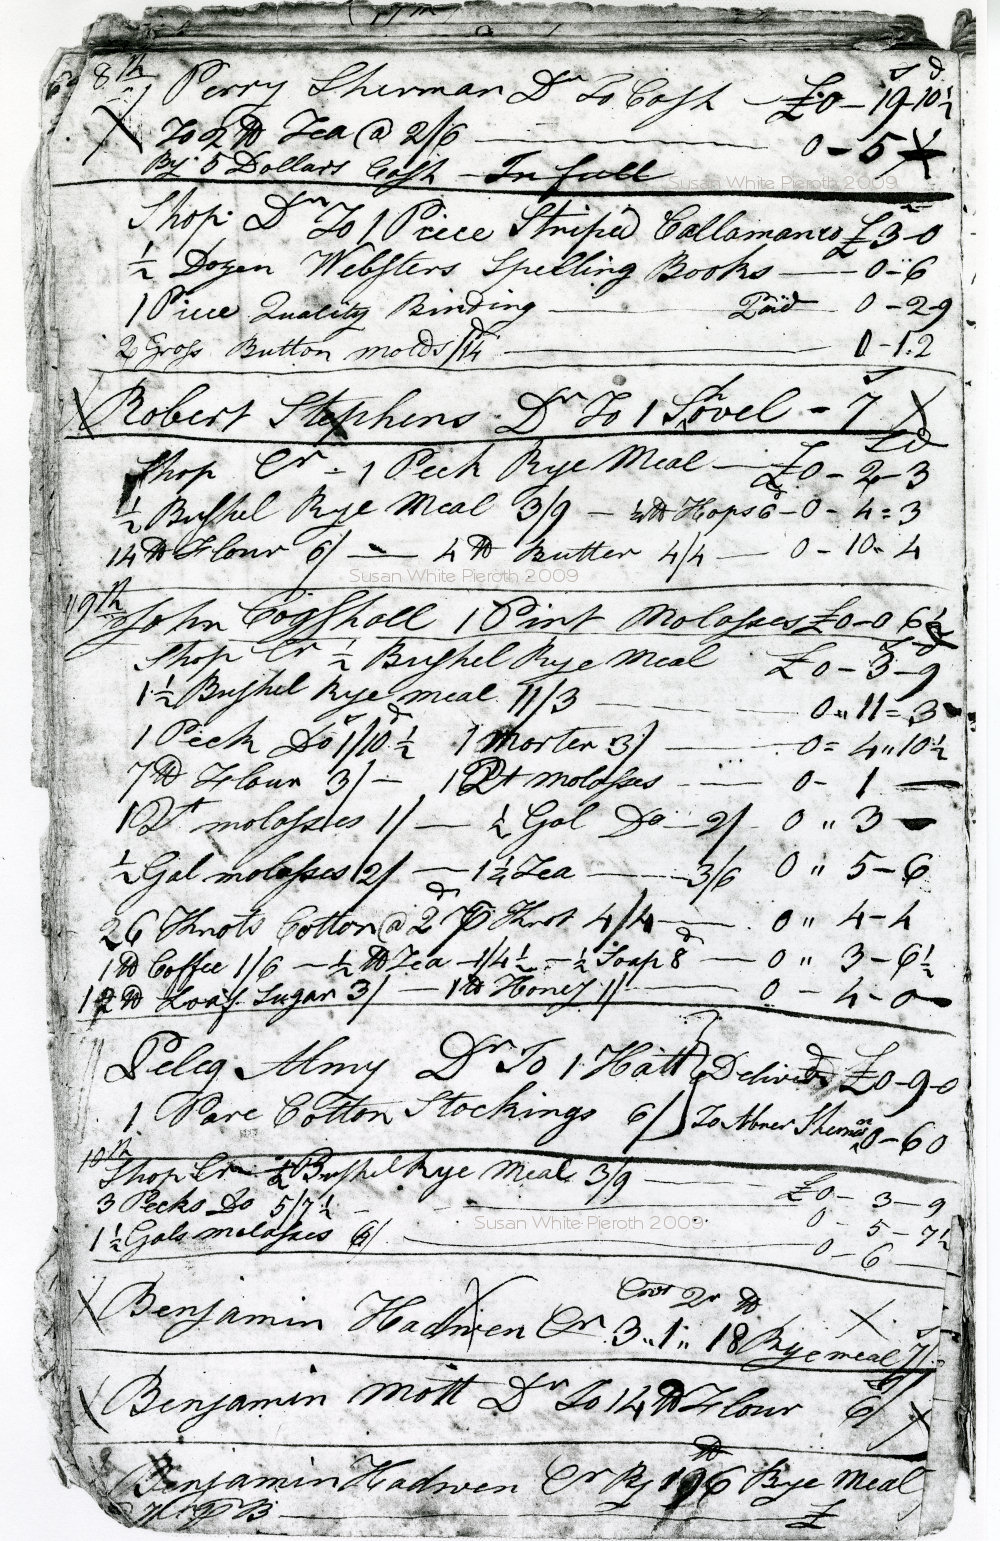 8th Perry Sherman Dr To Cash £0-19-10½
To 2 lb Tea @ 2/6 0-5
By 5 Dollars Cash - In full
Susan White Pieroth 2009
Shop Dr To 1 Piece Striped Callamanco £3-0
½ Dozen Websters Spelling Books 0-6
1 Piece Quality Binding Paid 0-2-9
2 Gross Button molds /14 0-1.2
Robert Stephens Dr To 1 Shovel - 7
Shop Cr - 1 Peck Rye Meal £0-2-3
½ Bushel Rye Meal 3/9 - ½ lb Hops 6d - 0-4=3
14 lb Flour 6/ - 4 lb Butter 4/4 0-10-4
Susan White Pieroth 2009
9th John Cogshall 1 Pint Molasses £0-0 6½
Shop Cr ½ Bushel Rye Meal £0-3-9
1½ Bushel Rye meal 11/3 0"11=3
1 Peck Do 1/10½ 1 Morter 3/ 0=4"10½
7 lb Flour 3/ - 1 Qt molasses 0-1
1 Qt molasses 1/ - ½ Gal Do - 2/ 0"3
½ Gal molasses 2/ - 1¼ Tea 3/6 0"5-6
26 Knots Cotton @ 2d p Knot 4/4 0"4-4
1 lb Coffee 1/6 - ½ lb Tea - 1/4½ - ½ Soap 8d 0"3-6½
1 lb Loaf Sugar 3/ - 1 lb Honey 1/ 0-4-0
Peleg Almy Dr To 1 Hatt Delivd £0-9-0
1 Pare Cotton Stockings 6/ To Abner Sherman 0-6 0
10th
Shop Cr ½ Bushel Rye Meal 3/9 £0-3-9
3 Pecks Do 5/7½ 0-5-7½
Susan White Pieroth 2009
1½ Gals molasses 6/ 0-6
Benjamin Hadwen Cr Cwt Qr lb 3"1"18 Rye meal
Benjamin Mott Dr To 14 lb Flour 6/
Benjamin Hadwen Cr By 196 lb Rye Meal
£